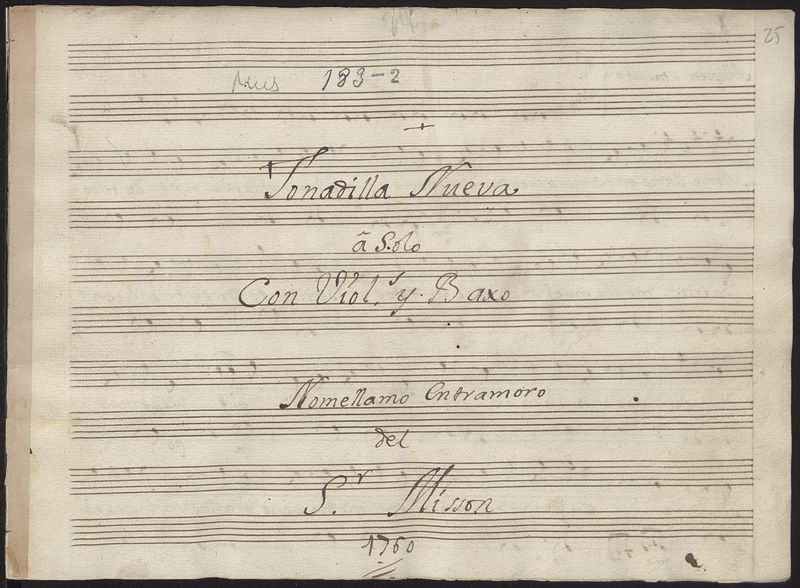 25
Mus 183-2
Tonadilla Nueva
â Solo
Con Viol.s y Baxo
Nomellamo Entramoro
del
S.r Misson
1760